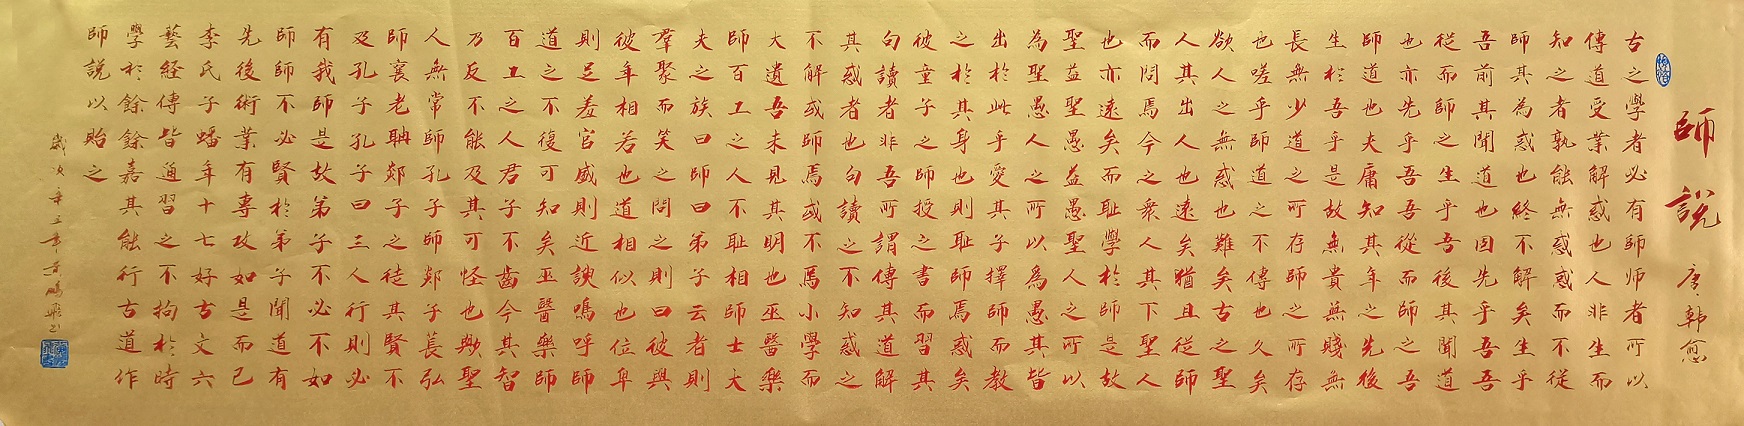 師說
唐·韓愈
古之學者必有師师者所以
傳道受業解惑也人非生而
知之者孰能無惑惑而不從
師其為惑也終不解矣生乎
吾前其聞道也固先乎吾吾
從而師之生乎吾後其聞道
也亦先乎吾吾從而師之吾
師道也夫庸知其年之先後
生於吾乎是故無貴無賤無
長無少道之所存師之所存
也嗟乎師道之不傳也久矣
欲人之無惑也難矣古之聖
人其出人也遠矣猶且從師
而問焉今之衆人其下聖人
也亦遠矣而耻學於師是故
聖益聖愚益愚聖人之所以
為聖愚人之所以為愚其皆
出於此乎愛其子擇師而教
之於其身也則耻師焉惑矣
彼童子之師授之書而習其
句讀者非吾所謂傳其道解
其惑者也句讀之不知惑之
不解或師焉或不焉小學而
大遺吾未見其明也巫醫樂
師百工之人不耻相師士大
夫之族曰師曰弟子云者則
羣聚而笑之問之則曰彼與
彼年相若也道相似也位卑
則足羞官盛則近諛嗚呼師
道之不復可知矣巫醫樂師
百工之人君子不齒今其智
乃反不能及其可怪也歟聖
人無常師孔子師郯子萇弘
師襄老聃郯子之徒其賢不
及孔子孔子曰三人行則必
有我師是故弟子不必不如
師師不必賢於弟子聞道有
先後術業有專攻如是而已
李氏子蟠年十七好古文六
藝經傳皆通習之不拘於時
學於餘餘嘉其能行古道作
師說以貽之
歲次辛丑年黃鵬飛书